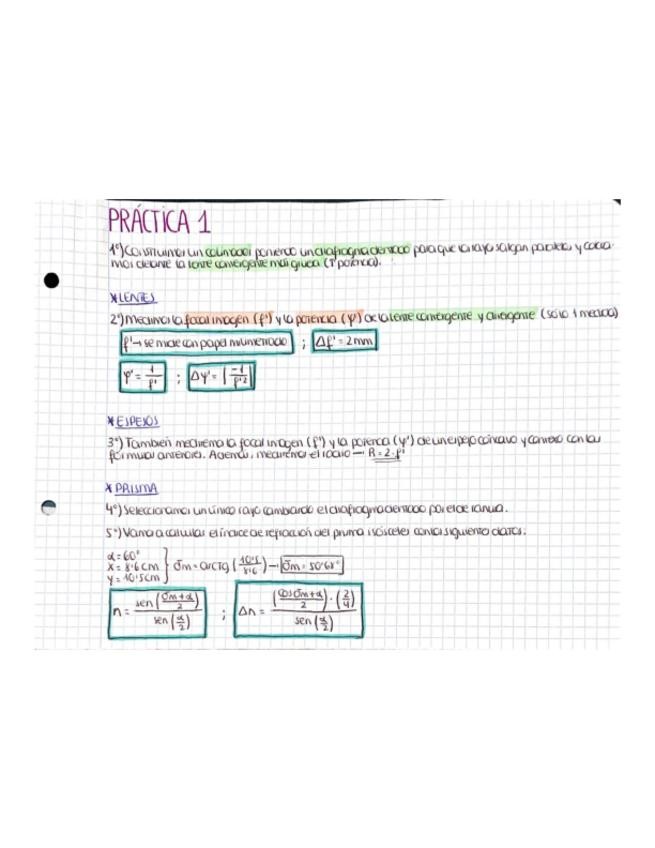 PRÁCTICA 1
1º) Construimos un colimador poniendo un diafragma dentado para que los rayos salgan paralelos y coloca-
mos delante la lente convergente más gruesa (↑ potencia).
* LENTES
2º) Medimos la focal imagen (f') y la potencia (φ') de la lente convergente y divergente (sólo 1 medida)
f' → se mide con papel milimetrado ; Δf' = 2mm
φ' = 1/f' ; Δφ' = |-1/f'²|
* ESPEJOS
3º) También mediremos la focal imagen (f') y la potencia (φ') de un espejo cóncavo y convexo con las
fórmulas anteriores. Además, mediremos el radio → R = 2·f'
* PRISMA
4º) Seleccionamos un único rayo cambiando el diafragma dentado por el de ranura.
5º) Vamos a calcular el índice de refracción del prisma isósceles con los siguientes datos.
α = 60°
x = 8'6 cm } δm = arctg (10'5/8'6) → δm = 50'68°
y = 10'5 cm
n = sen((δm+α)/2) / sen(α/2) ; Δn = (cos(δm+α)/2)·(2/4) / sen(α/2)